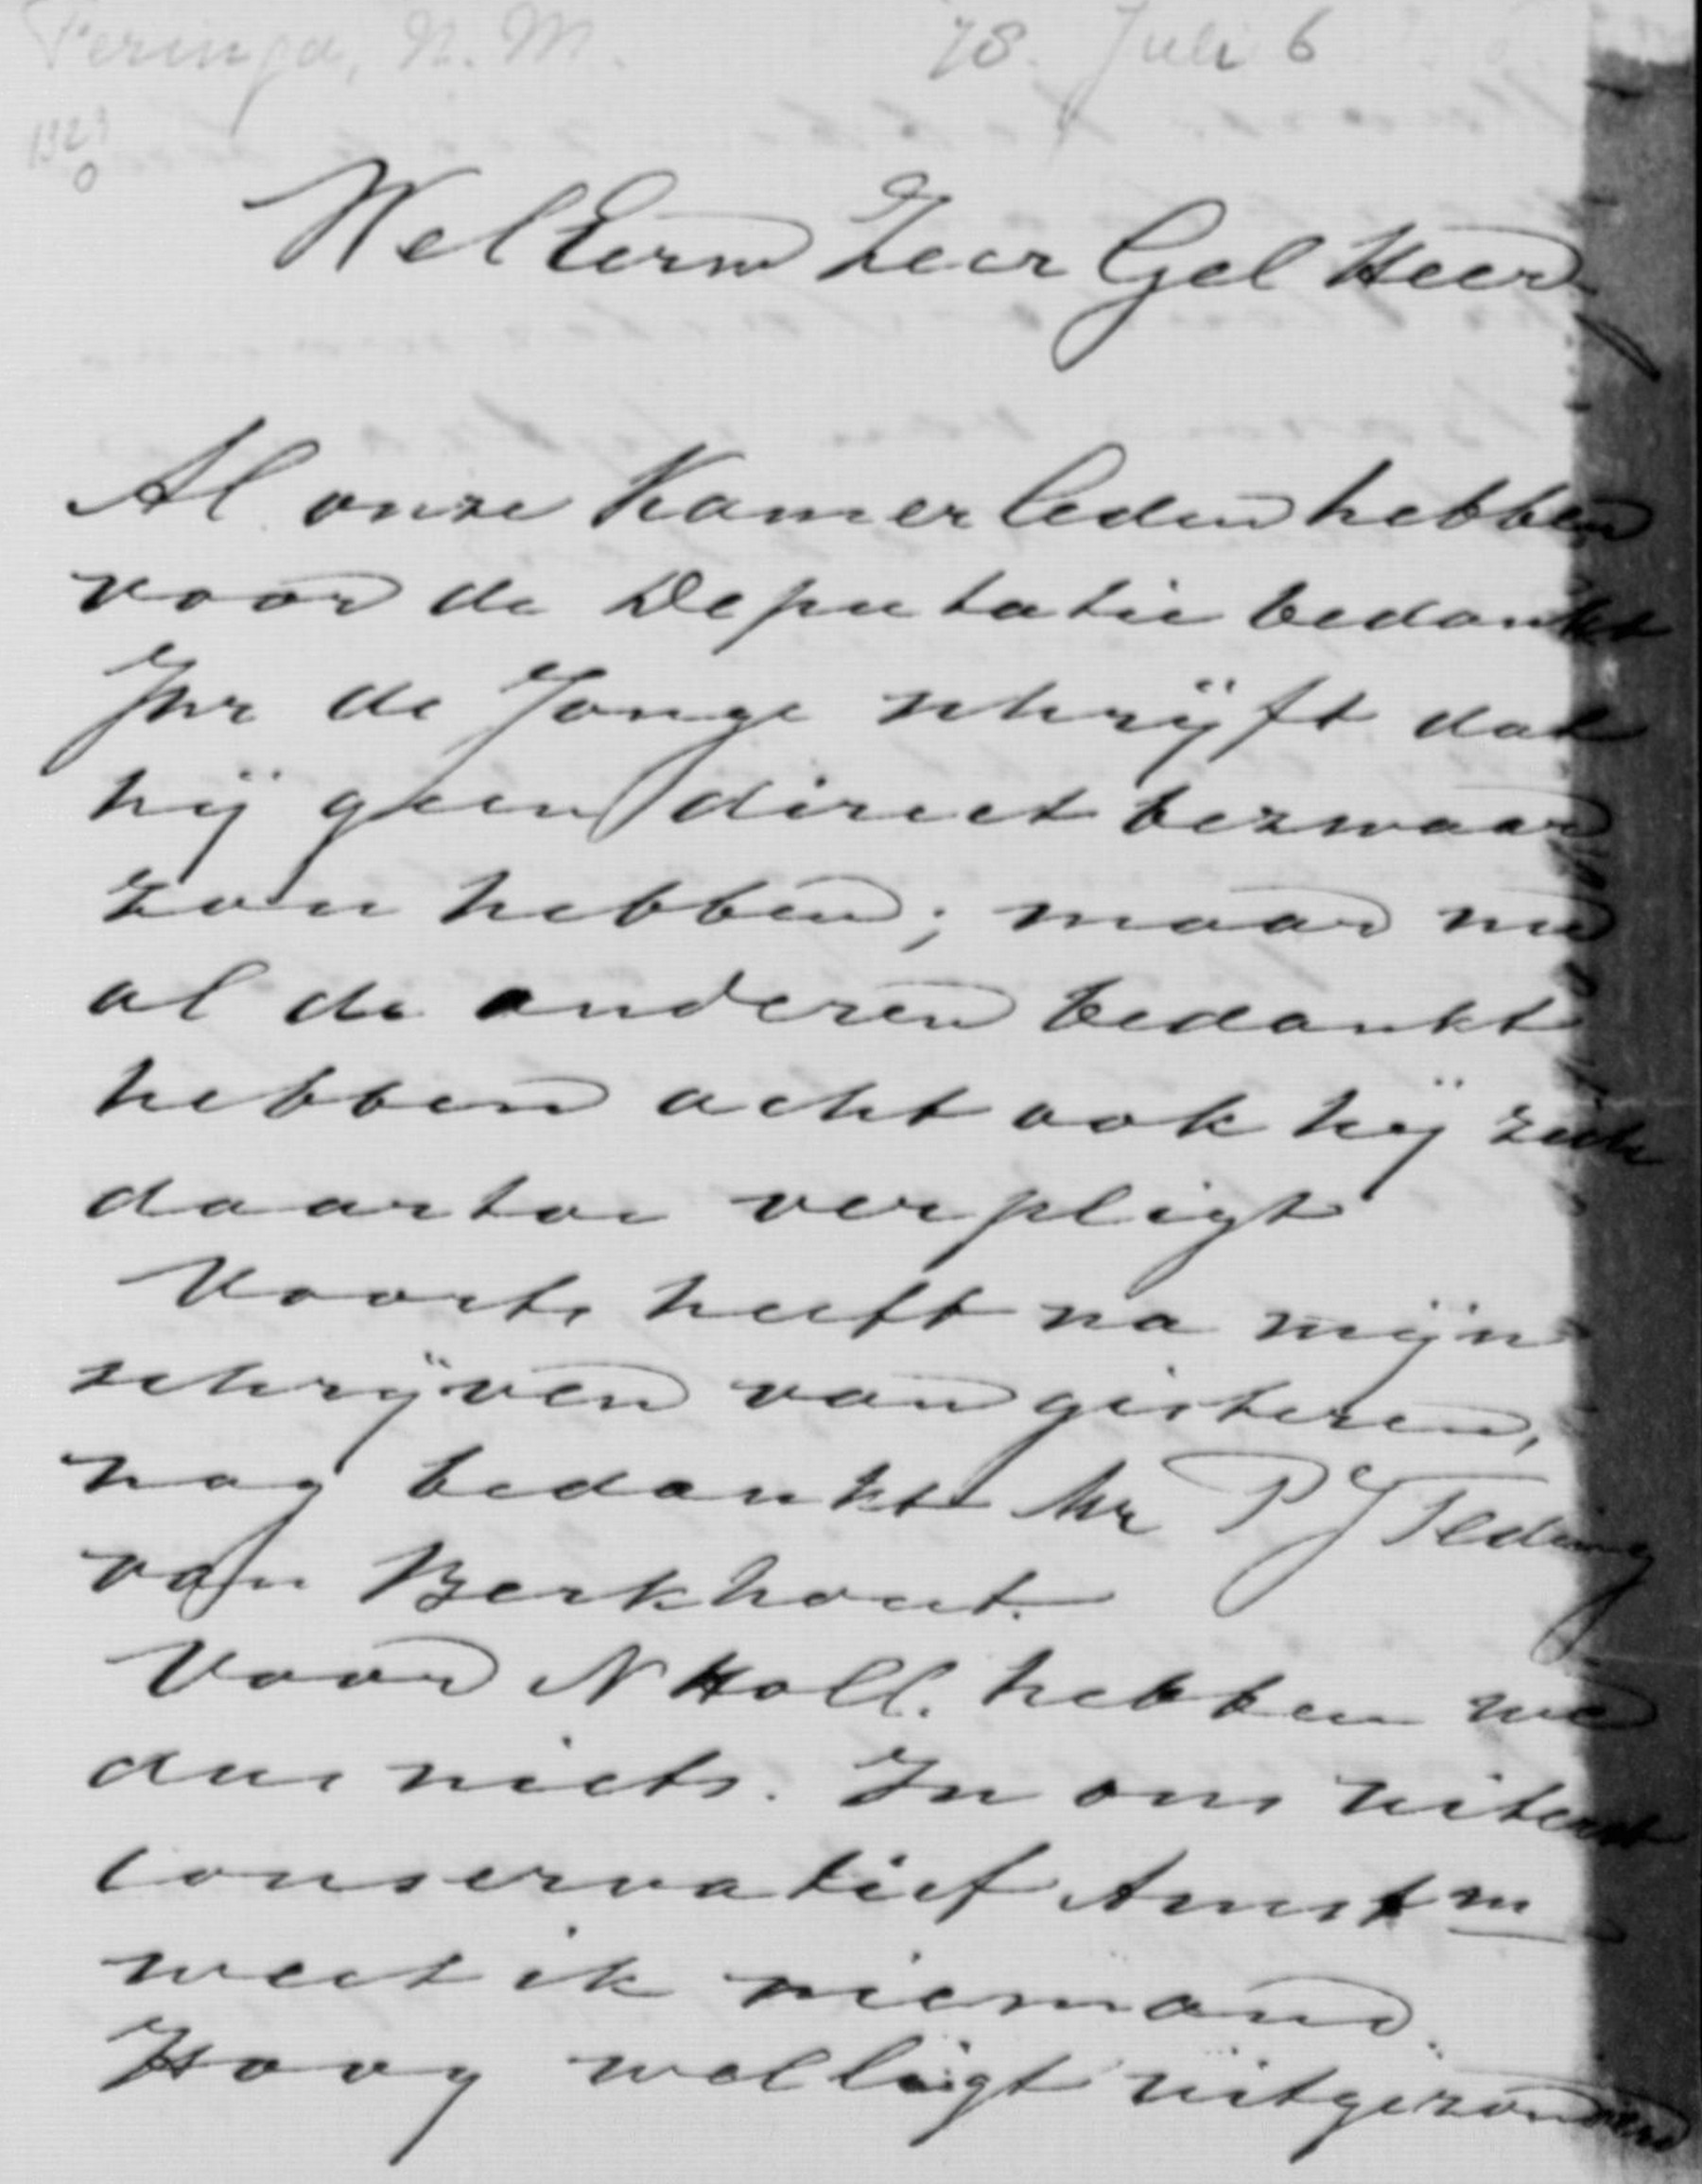 Feringa, N. M. 78. Juli 6
WelEerw Zeer Gel Heer
Al onze Kamerleden hebben
voor de Deputatie bedankt
Jhr de Jonge schrijft dat
hij geen direct bezwaar
zou hebben; maar nu
al de anderen bedankt
hebben acht ook hij zich
daartoe verpligt
Voorts heeft na mijn
schrijven van gisteren,
nog bedankt Mr P J Teding
van Berkhout.
Voor N Holl. hebben we
dus niets. In ons uiterst
conservatief Amstm
weet ik niemand.
Hovy welligt uitgezonderd